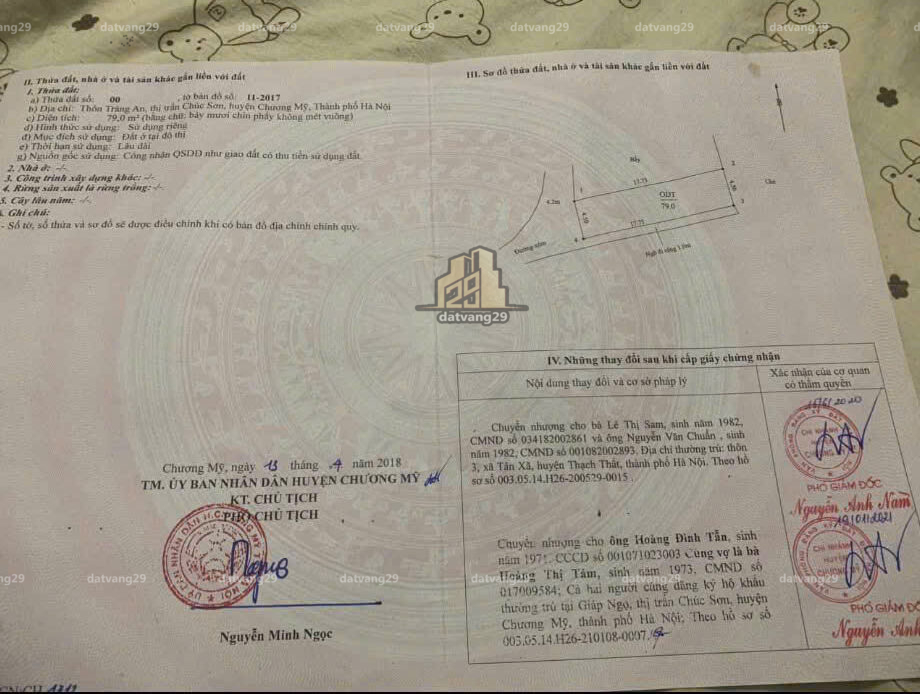 II. Thửa đất, nhà ở và tài sản khác gắn liền với đất
1. Thửa đất:
a) Thửa đất số: 00 , tờ bản đồ số: 11-2017
b) Địa chỉ: Thôn Tràng An, thị trấn Chúc Sơn, huyện Chương Mỹ, Thành phố Hà Nội
c) Diện tích: 79,0 m² (bằng chữ: bảy mươi chín phẩy không mét vuông)
d) Hình thức sử dụng: Sử dụng riêng
đ) Mục đích sử dụng: Đất ở tại đô thị
e) Thời hạn sử dụng: Lâu dài
g) Nguồn gốc sử dụng: Công nhận QSDĐ như giao đất có thu tiền sử dụng đất.
2. Nhà ở: -/-
3. Công trình xây dựng khác: -/-
4. Rừng sản xuất là rừng trồng: -/-
5. Cây lâu năm: -/-
6. Ghi chú:
- Số tờ, số thửa và sơ đồ sẽ được điều chỉnh khi có bản đồ địa chính chính quy.
Chương Mỹ, ngày 13 tháng 4 năm 2018
TM. ỦY BAN NHÂN DÂN HUYỆN CHƯƠNG MỸ
KT. CHỦ TỊCH
PHÓ CHỦ TỊCH
Nguyễn Minh Ngọc
III. Sơ đồ thửa đất, nhà ở và tài sản khác gắn liền với đất
B
Bẩy
1
2
17.75
4.2m
4.50
ODT
79,0
4.50
3
4
17.75
Đường xóm
Ngõ đi rộng 1.8m
28
datvang29
IV. Những thay đổi sau khi cấp giấy chứng nhận
Nội dung thay đổi và cơ sở pháp lý
Xác nhận của cơ quan
có thẩm quyền
Chuyển nhượng cho bà Lê Thị Sam, sinh năm 1982,
CMND số 034182002861 và ông Nguyễn Văn Chuẩn , sinh
năm 1982, CMND số 001082002893. Địa chỉ thường trú: thôn
3, xã Tân Xã, huyện Thạch Thất, thành phố Hà Nội. Theo hồ
sơ số 003.05.14.H26-200529-0015 .
PHÓ GIÁM ĐỐC
Nguyễn Anh Nam
19/01/2021
Chuyển nhượng cho ông Hoàng Đình Tẫn, sinh
năm 1971, CCCD số 001071023003 Cùng vợ là bà
Hoàng Thị Tâm, sinh năm 1973, CMND số
017009584; Cả hai người cùng đăng ký hộ khẩu
thường trú tại Giáp Ngọ, thị trấn Chúc Sơn, huyện
Chương Mỹ, thành phố Hà Nội; Theo hồ sơ số
003.05.14.H26-210108-0007.
PHÓ GIÁM ĐỐC
Nguyễn Anh